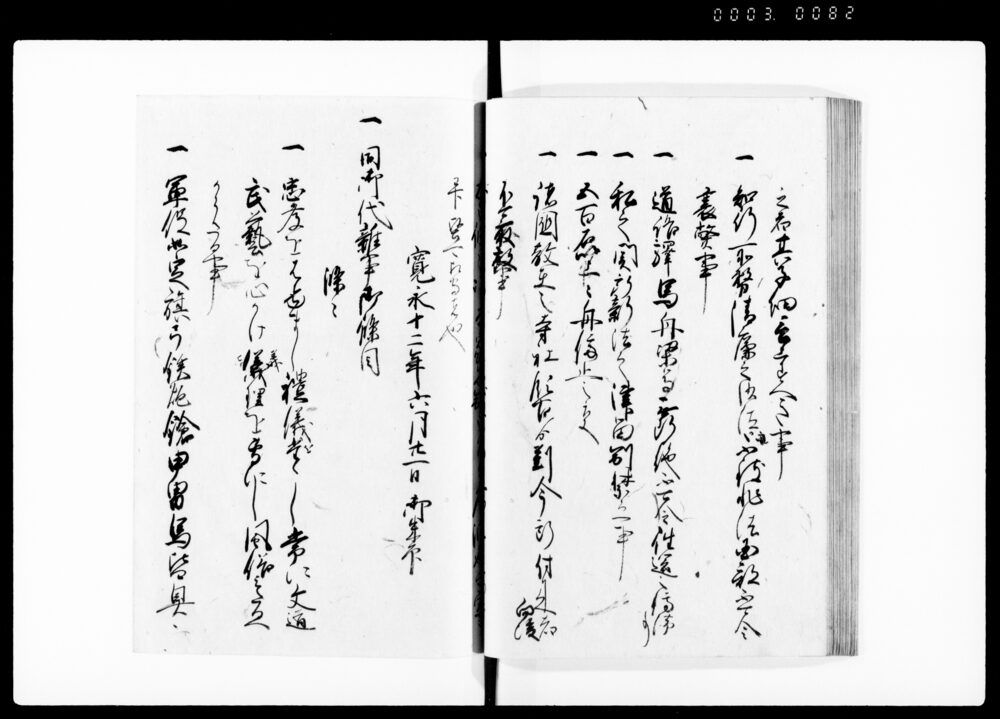 0003. 0082
之者其子細言上之事
一 知行所務清廉之沙汰不致非法国郡不可令
衰弊事
一 道路驛馬舟梁等無断絶不可令往還之停滞事
一 私之関所新法之津留制禁之事
一 五百石以上之舟停止之事
一 諸國散在之寺社領自古至今所附来者向後
不可取放事
寛永十二年六月廿一日御朱印
一 同御代雜事御條目
條々
一 忠孝をはけまし禮儀をたゝし常に文道
武藝を心かけ義理を専にし風俗を
みたるへからさる事
一 軍役如定旗弓鉄炮鎗甲冑馬皆具